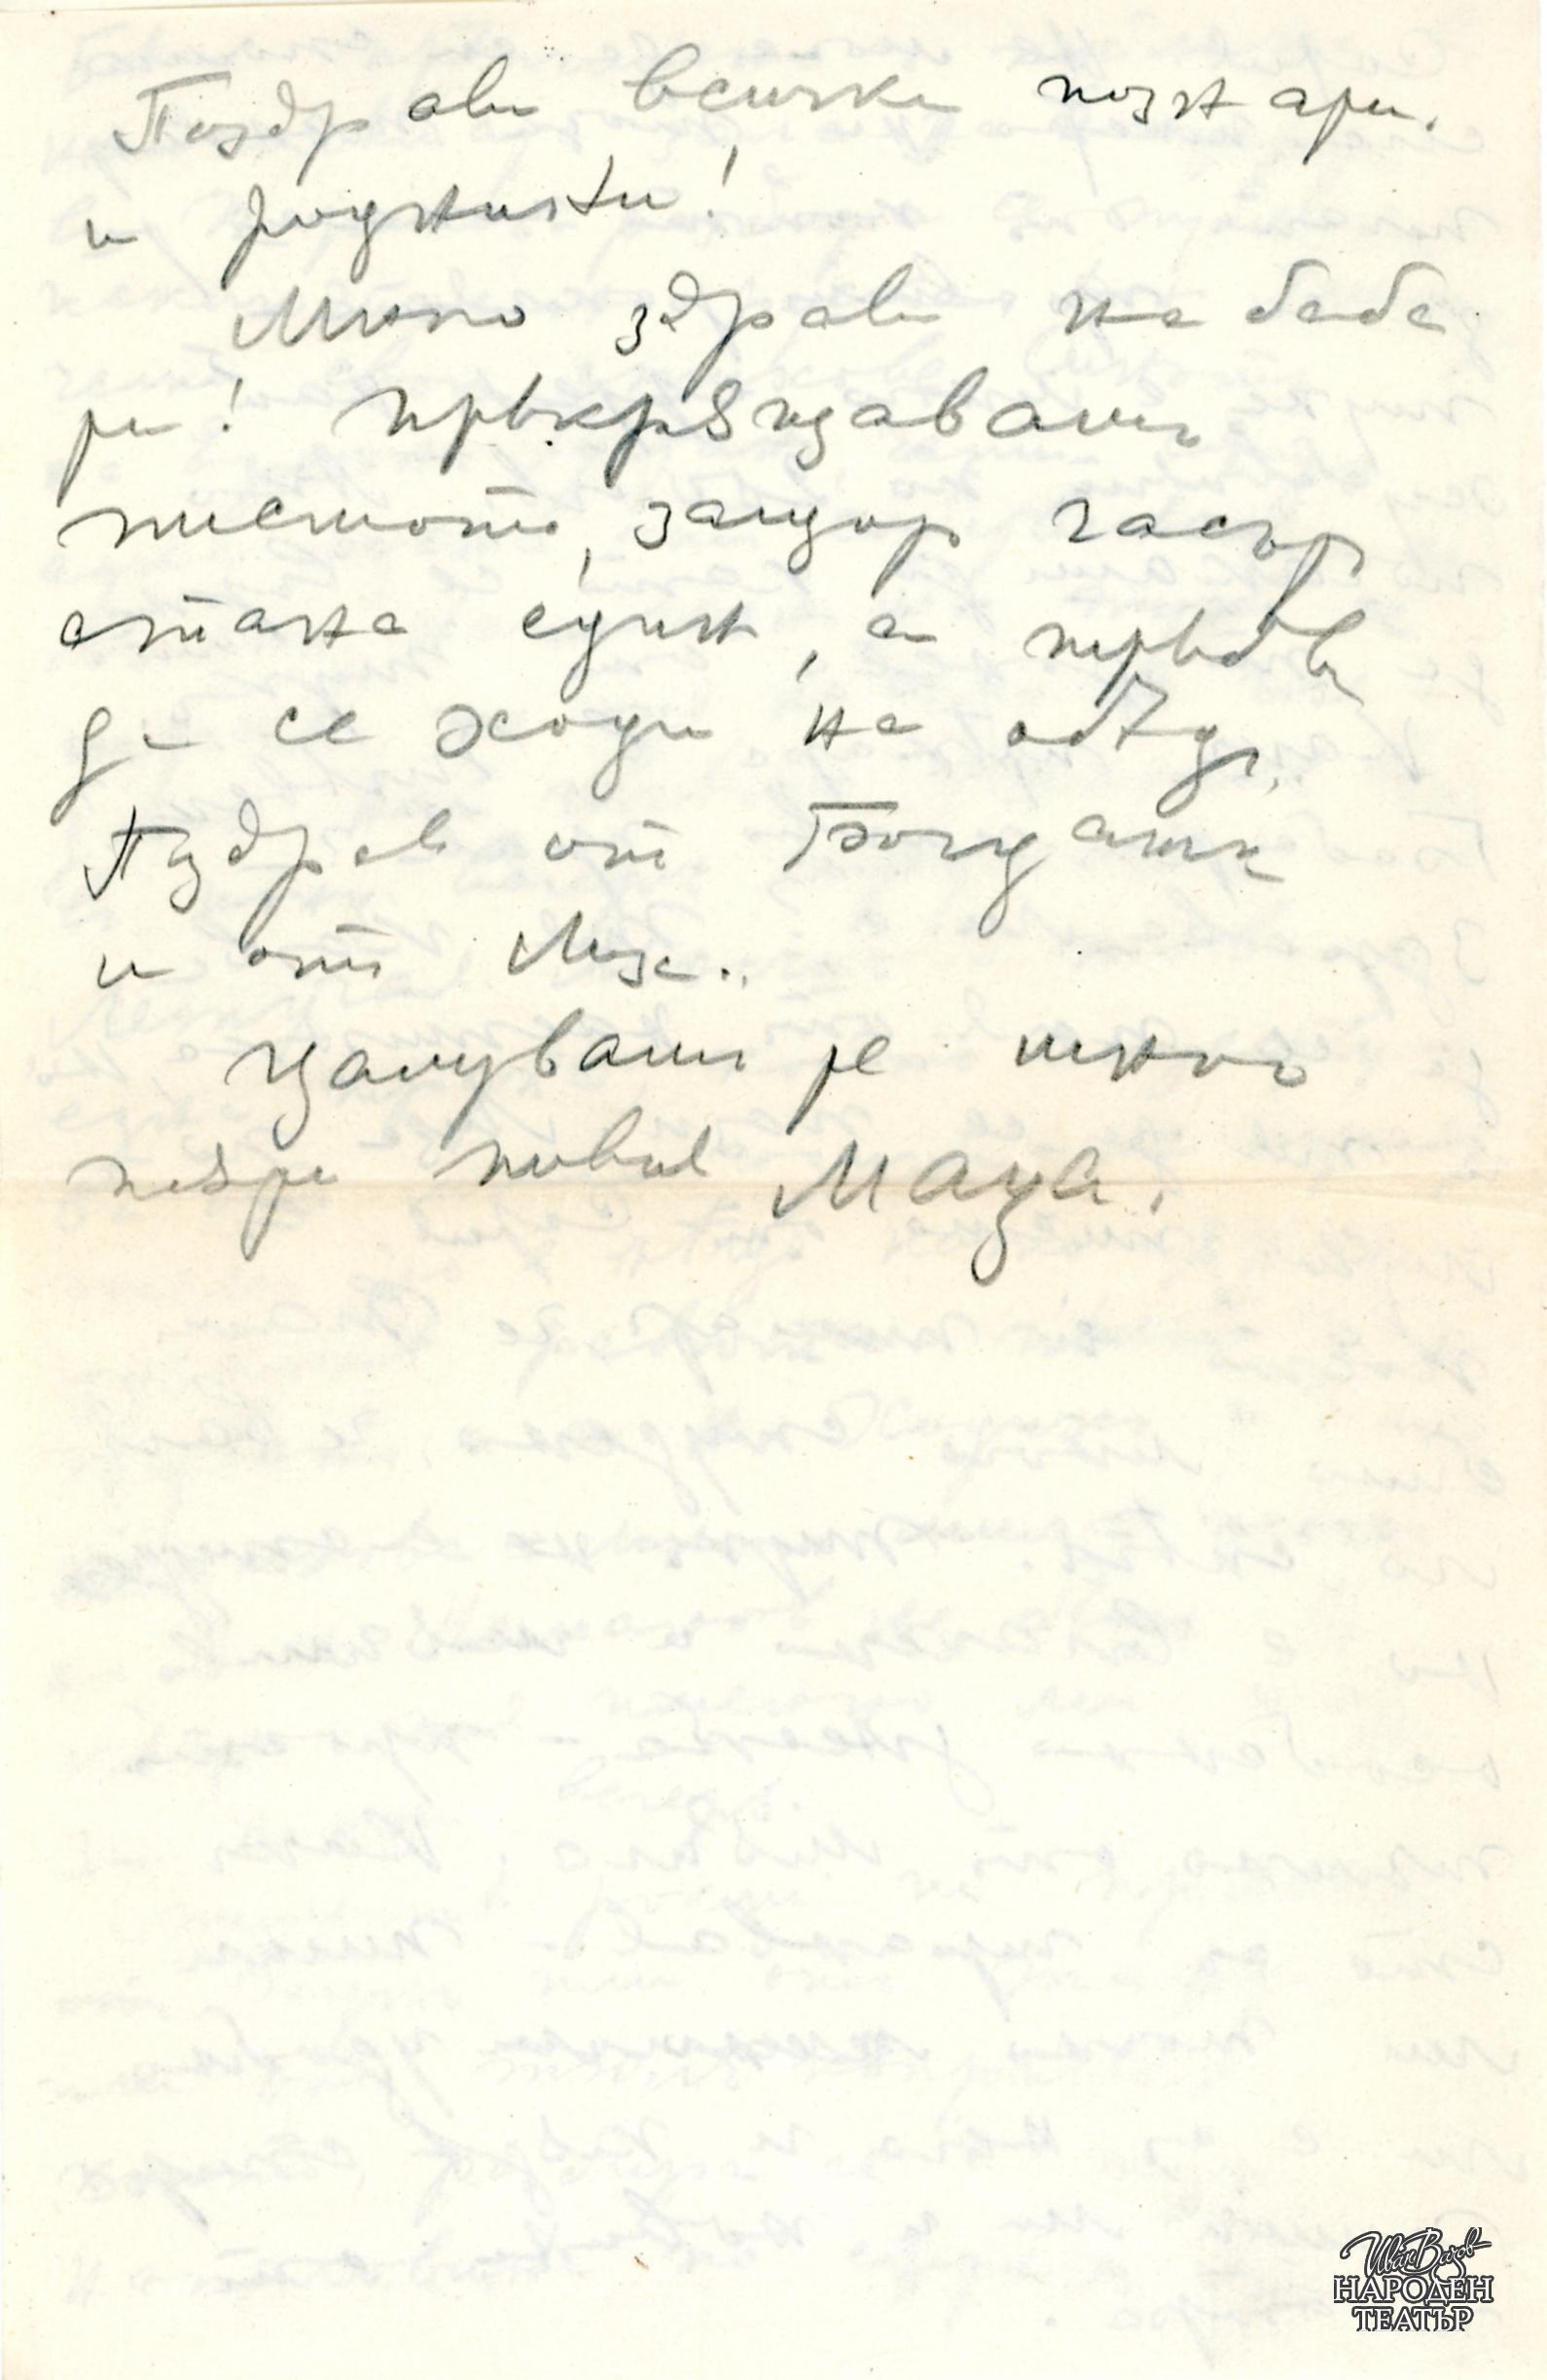 Поздрави всички познати
и роднини!
Много здраве на баба
ти! прекъсвамъ
писмото, защото часът
стана един, а трѣбва
да се ходи на обѣдъ.
Поздрав от Богдана
и от Миза.
Целувам те много
твоя Маца.
Иван Вазов
НАРОДЕН
ТЕАТЪР